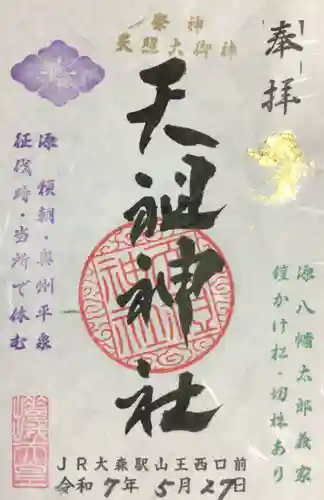 奉拝
祭神
天照大御神
天祖神社
源八幡太郎義家
鎧かけ松・切株あり
源頼朝・奥州平泉
征伐時・当所で休む
JR大森駅山王西口前
令和7年5月27日